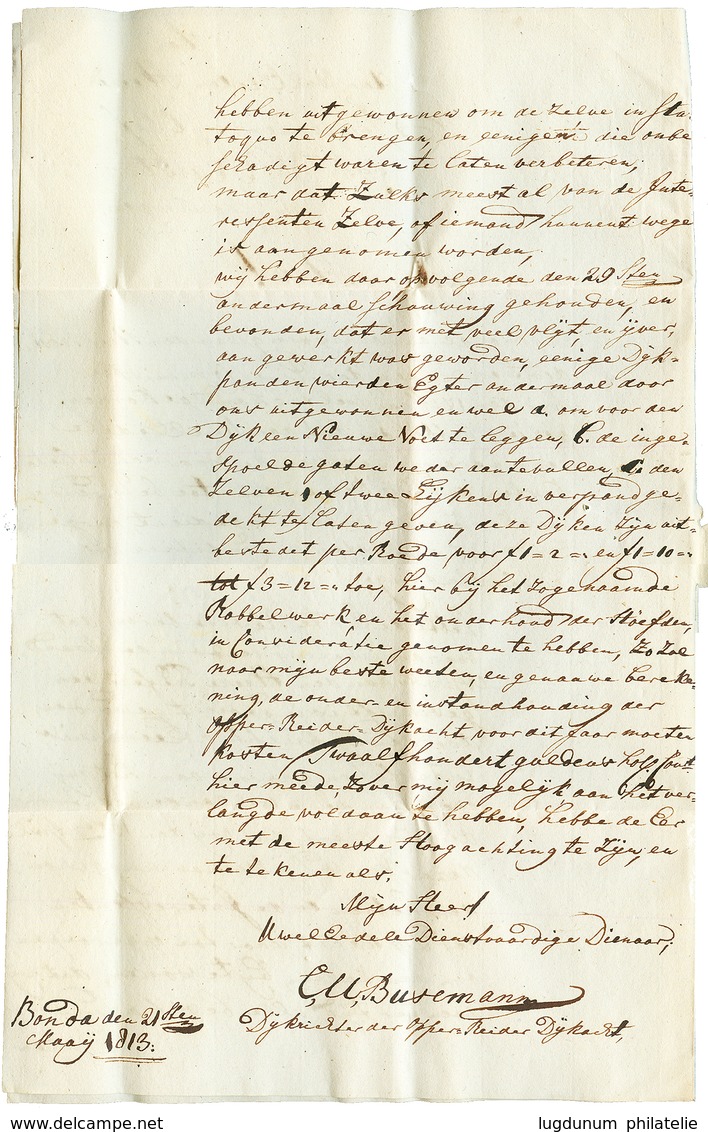 hebben uitgewonnen om de zelve in sta-
toquo te brengen, en eenigen die onbe
schadigt waren te laten verbeteren,
maar dat Zulks meest al van de Inte-
ressenten Zelve, of iemand hunnent wege
is aangenomen worden,
wij hebben daar op volgende den 29 Sten
andermaal schauwing gehouden, en
bevonden, dat er met veel vlijt, en ijver,
aan gewerkt was geworden, eenige Dijk-
panden wierden Egter andermaal door
ons uitgewonnen en wel a. om voor den
Dijk een Nieuwe Voet te leggen, b. de inge-
spoelde gaten weder aantevullen, c. den
Zelven 1 of twee in verspand ge-
dekt te laten geven, deze Dijken zijn uit-
bestedet per Roede voor f1=2=" en f1=10="
tot f3=12=" toe, hier bij het zogenaamde
Rabbelwerk en het onderhoud der Hoefden,
in Consideratie genomen te hebben, Zo Zoe
naar mijn beste weeten, en genauwe bereke-
ning, de onder- en instandhouding der
Opper=Reider=Dijkacht voor dit Jaar moeten
kosten Twaalfhondert guldens holl Cour:
hier meede, zo ver mij mogelijk aan het ver-
langde voldaan te hebben, hebbe de Eer
met de meeste Hoogachting te Zijn, en
te tekenen als,
Mijn Heer
UwelEedele Dienstvaardige Dienaar,
C,U,Busemann
Dijkrichter der Opper=Reider Dijkacht,
Bonda den 21 Sten
Maaij 1813:
lugdunum philatelie